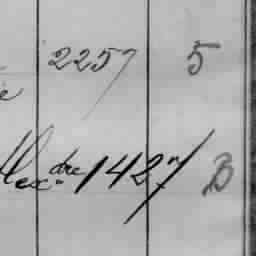 2257 5
e
Alexdre 1427 B